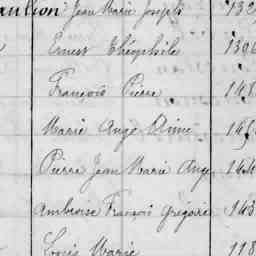 Jean Marie Joseph 132
Ernest Théophile 1306
François Pierre 148
Marie Ange Aimé 14
Pierre Jean Marie Ange 144
Ambroise François Grégoire 143
Louis Marie 118